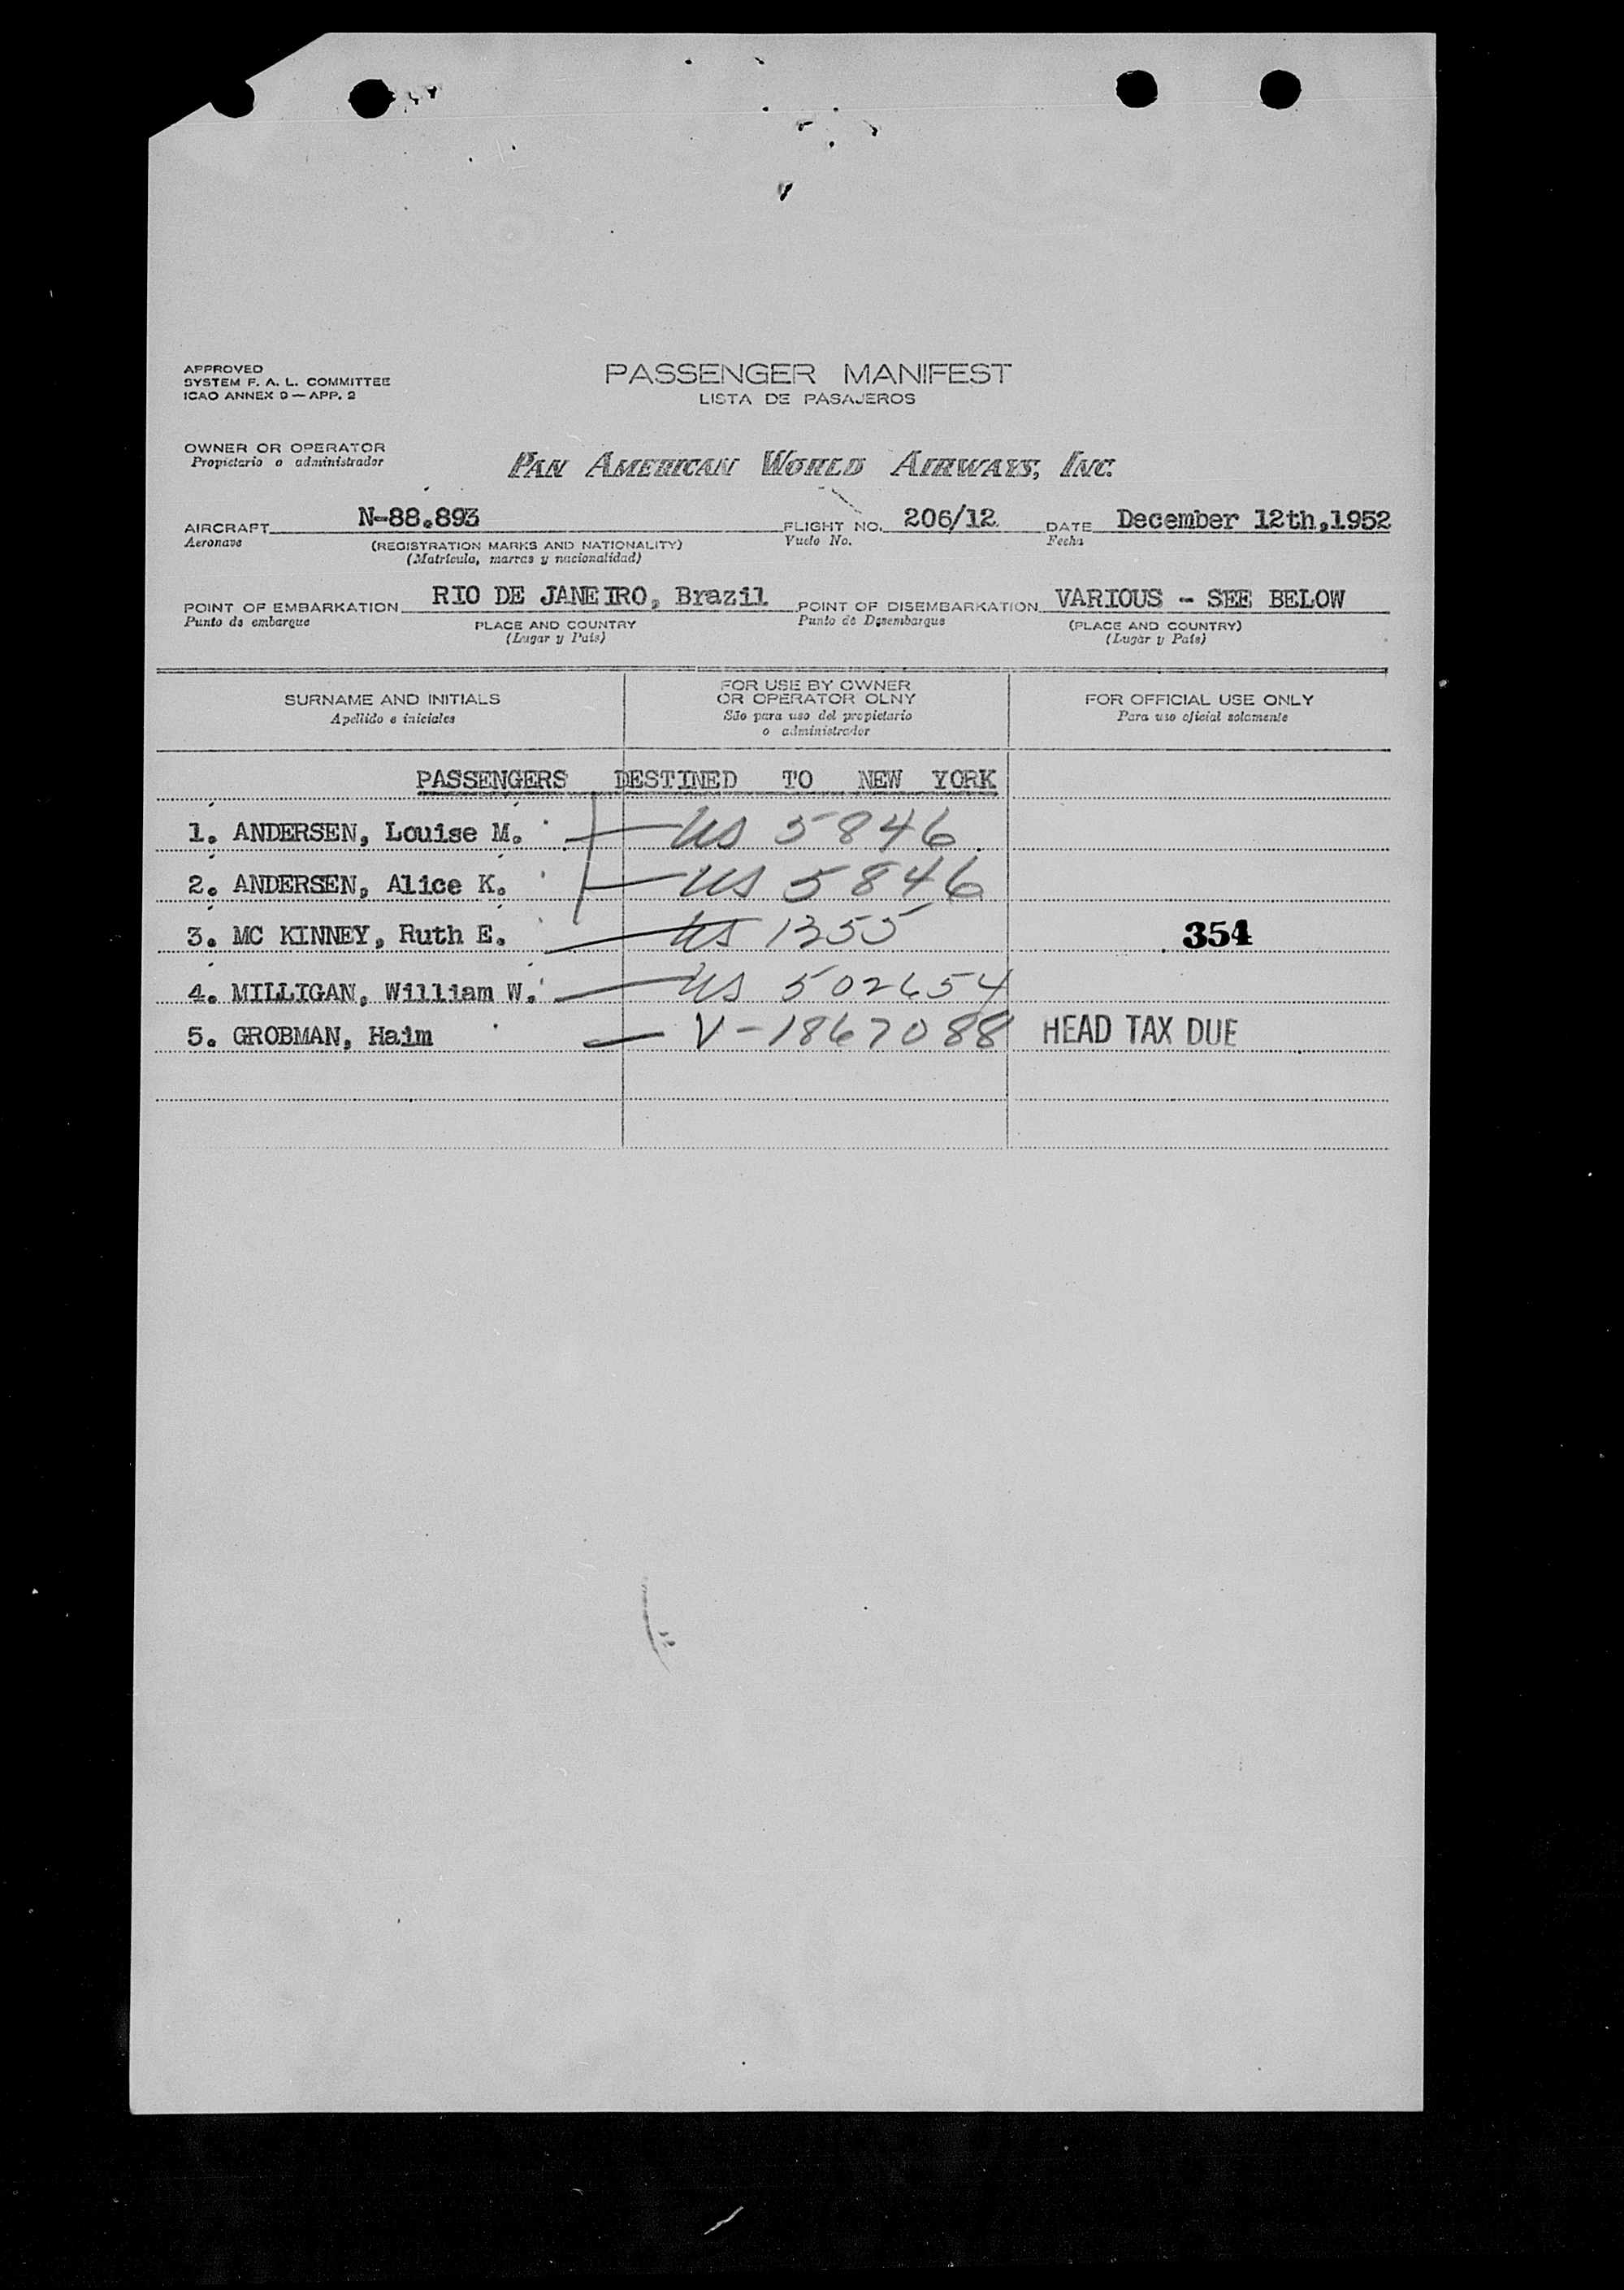 APPROVED
SYSTEM F. A. L. COMMITTEE
ICAO ANNEX 9 — APP. 2
PASSENGER MANIFEST
LISTA DE PASAJEROS
OWNER OR OPERATOR
Propietario o administrador
PAN AMERICAN WORLD AIRWAYS, INC.
AIRCRAFT N-88.893 FLIGHT NO. 206/12 DATE December 12th,1952
Aeronave (REGISTRATION MARKS AND NATIONALITY) Vuelo No. Fecha
(Matrícula, marcas y nacionalidad)
POINT OF EMBARKATION RIO DE JANEIRO, Brazil POINT OF DISEMBARKATION VARIOUS - SEE BELOW
Punto de embarque PLACE AND COUNTRY Punto de Desembarque (PLACE AND COUNTRY)
(Lugar y País) (Lugar y País)
SURNAME AND INITIALS
Apellido e iniciales
FOR USE BY OWNER
OR OPERATOR OLNY
São para uso del propietario
o administrador
FOR OFFICIAL USE ONLY
Para uso oficial solamente
PASSENGERS DESTINED TO NEW YORK
1. ANDERSEN, Louise M. US 5846
2. ANDERSEN, Alice K. US 5846
3. MC KINNEY, Ruth E. US 1355 354
4. MILLIGAN, William W. US 502654
5. GROBMAN, Haim V-1867088 HEAD TAX DUE